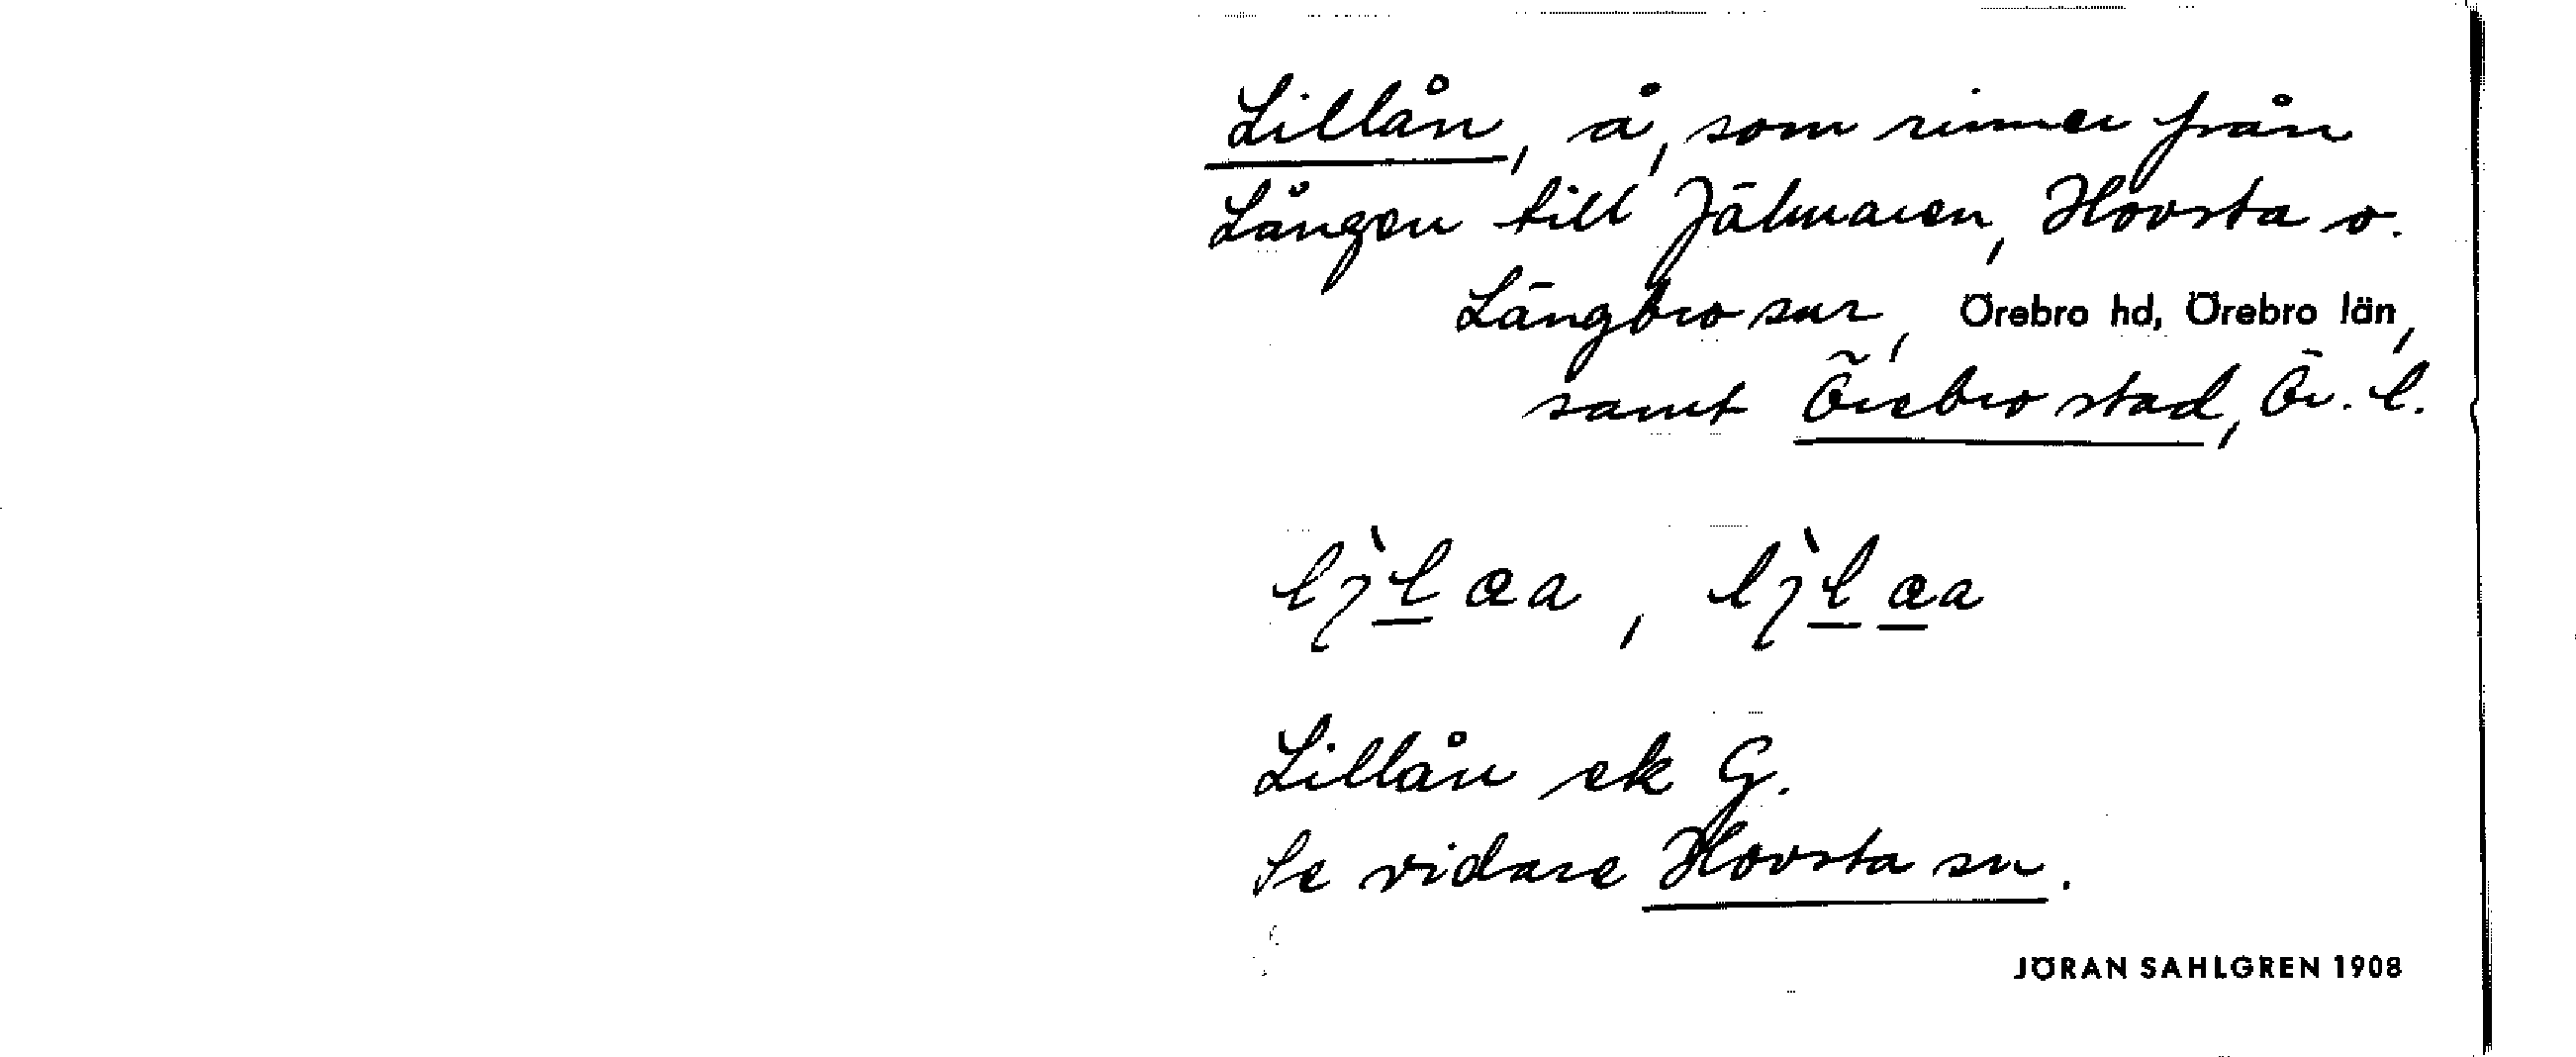 Lillån, å, som rinner från
Lången till Jälmaren, Hovsta o.
Längbro snr, Örebro hd, Örebro län,
samt Örebro stad, Ör. l.
Lillån ek G.
Se vidare Hovsta sn.
JÖRAN SAHLGREN 1908